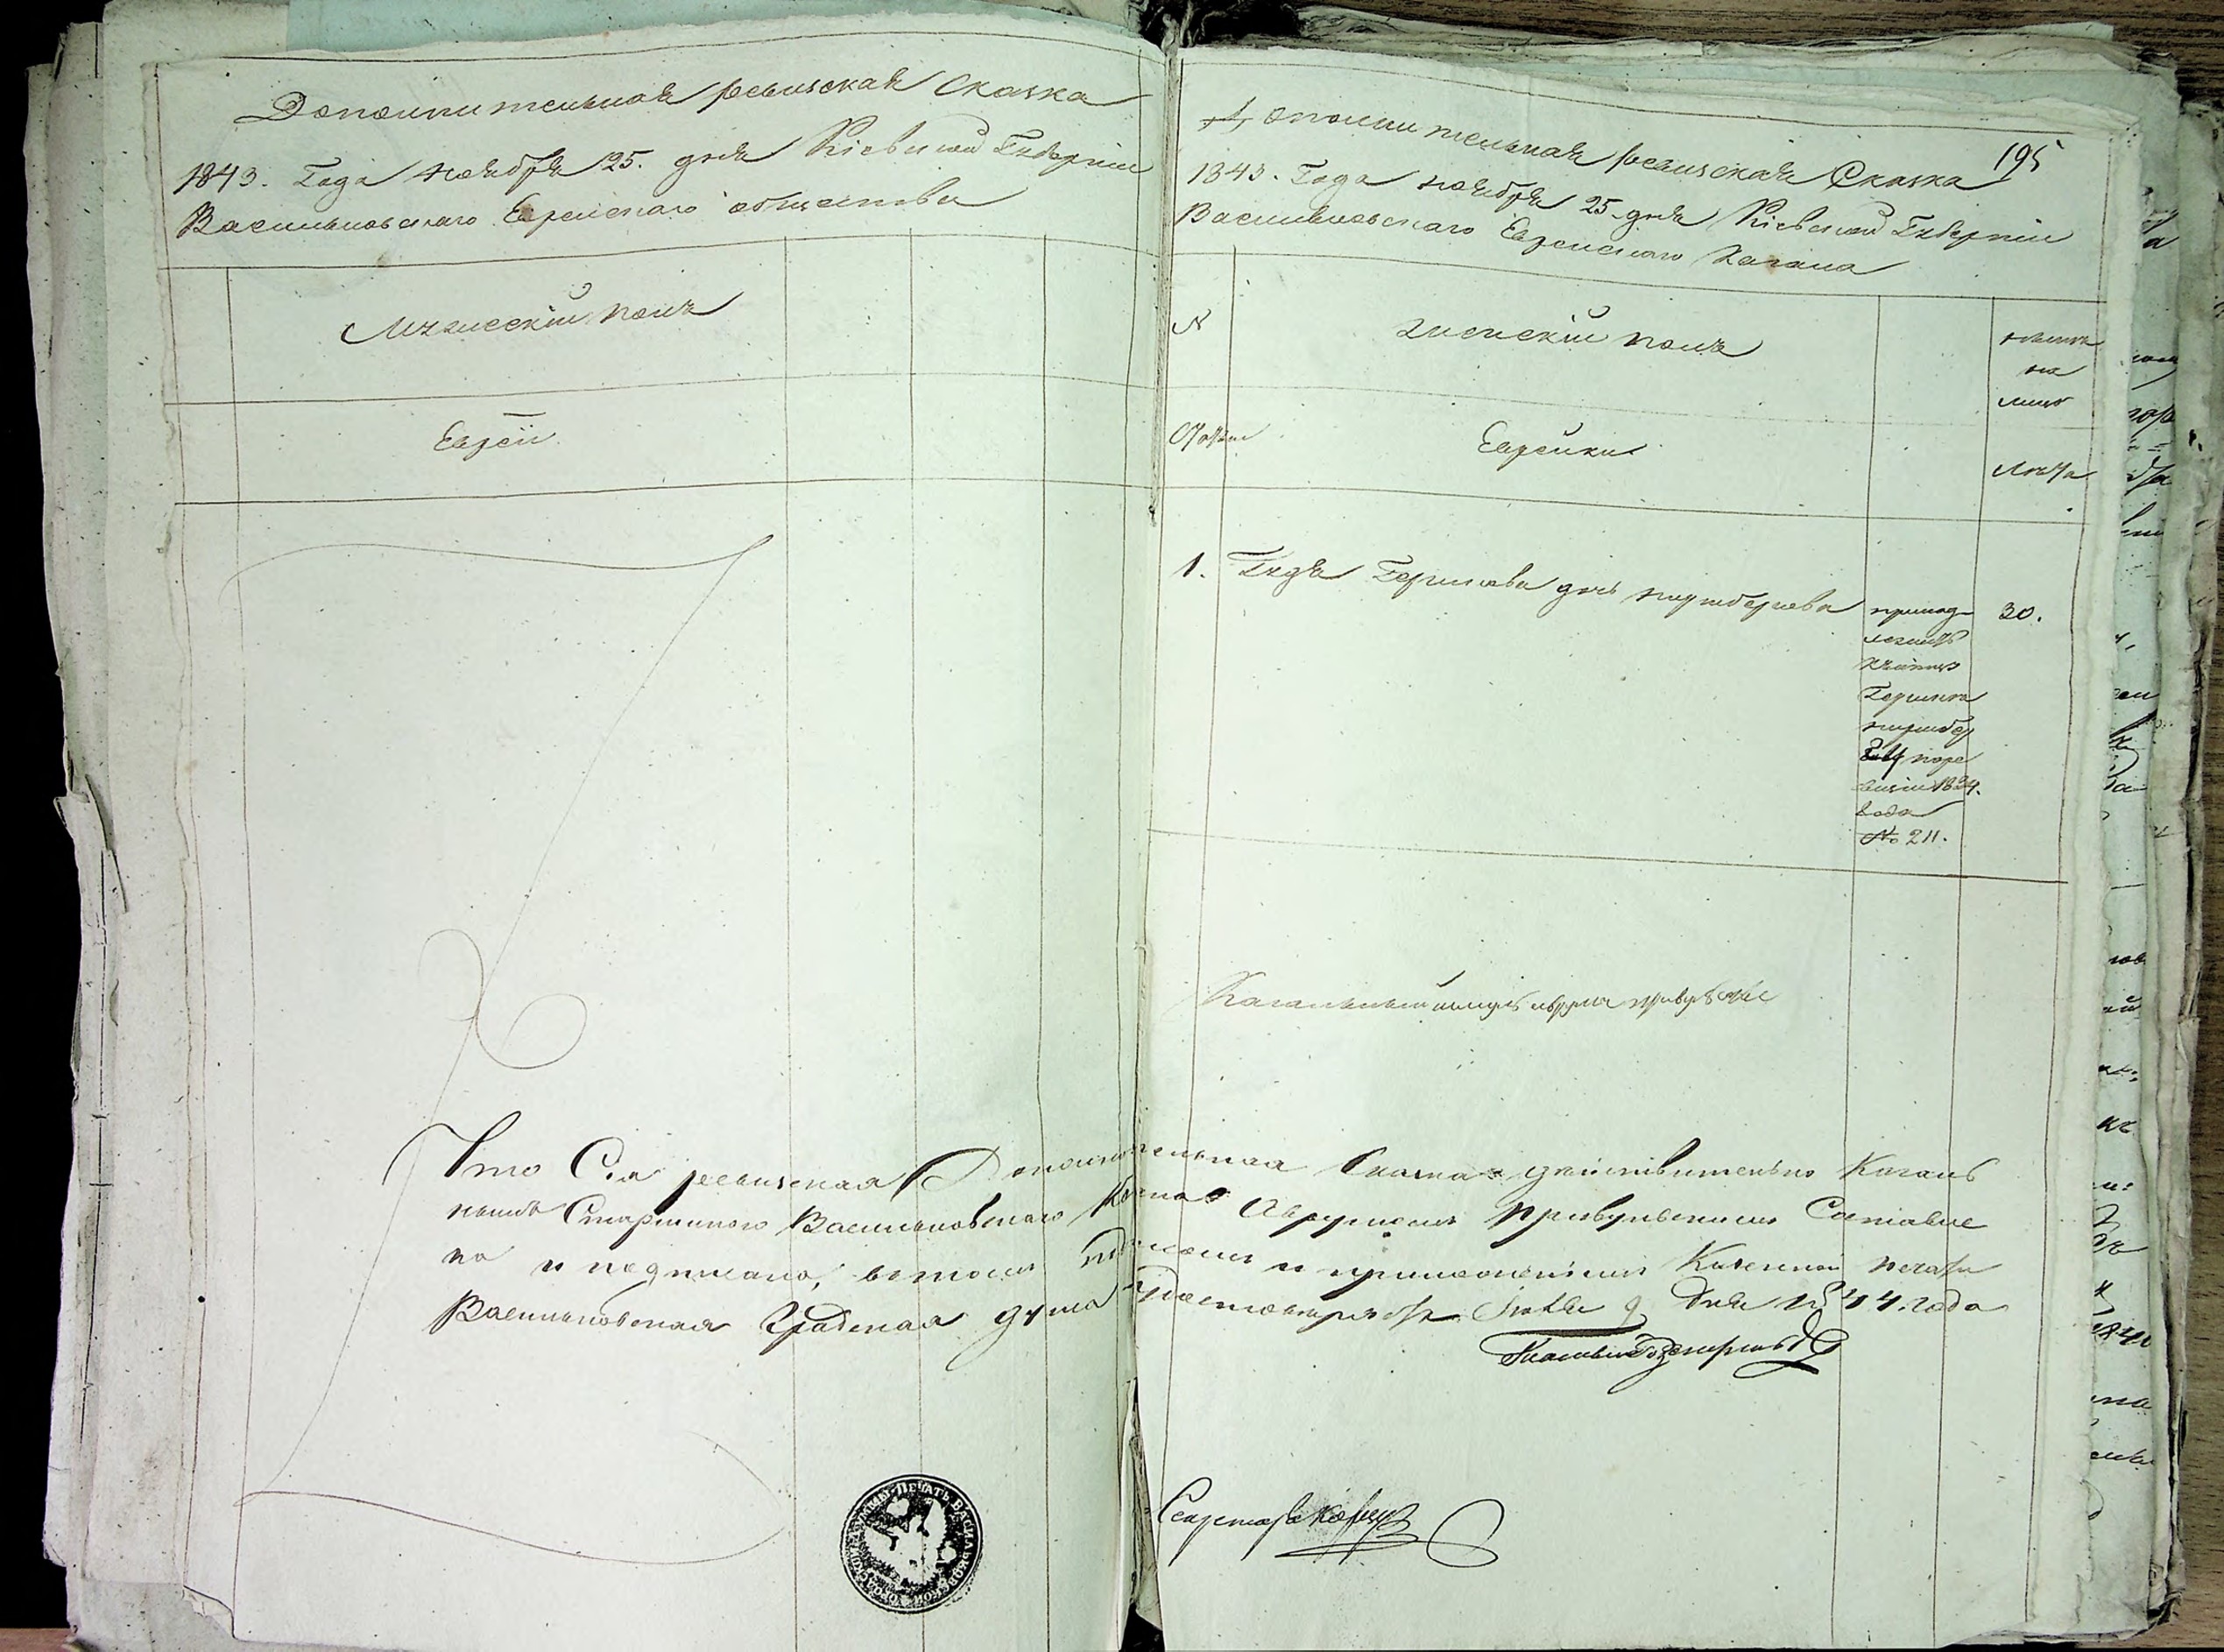 Дополнительная ревизская Сказка
1843. Года ноября 25. дня Кіевской Губерніи
Васильковскаго Еврейскаго общества
Мужескій полъ
Евреи
Дополнительная ревизская Сказка
195
1843. Года ноября 25. дня Кіевской Губерніи
Васильковскаго Еврейскаго Кагала
N
женскій полъ
на
лицо
Евреики
Лѣта
1. Гидя Гершкова дочь
30.
принад
лежитъ
Гершка
по ре
визіи 1834.
года
№ 211.
Кагальный
Что Сія ревизская Дополнительная Сказка действительно Кагаль
нымъ Старшиною Васильковского Кагала Аврумомъ Составле
на и подписана, въ томъ подписомъ и приложеніемъ Казенной печати
Васильковская Градская дума удостоверяетъ дня 1844. года
Секретарь
ПЕЧАТЬ ВАСИЛЬКОВСКОЙ ГОРОДСКОЙ ДУМЫ